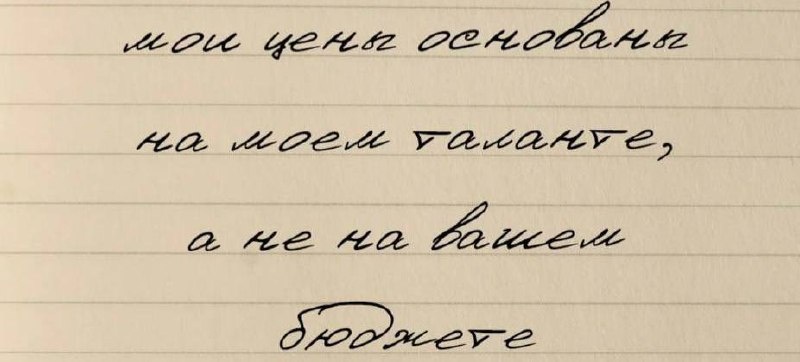 мои цены основаны
на моем таланте,
а не на вашем
бюджете